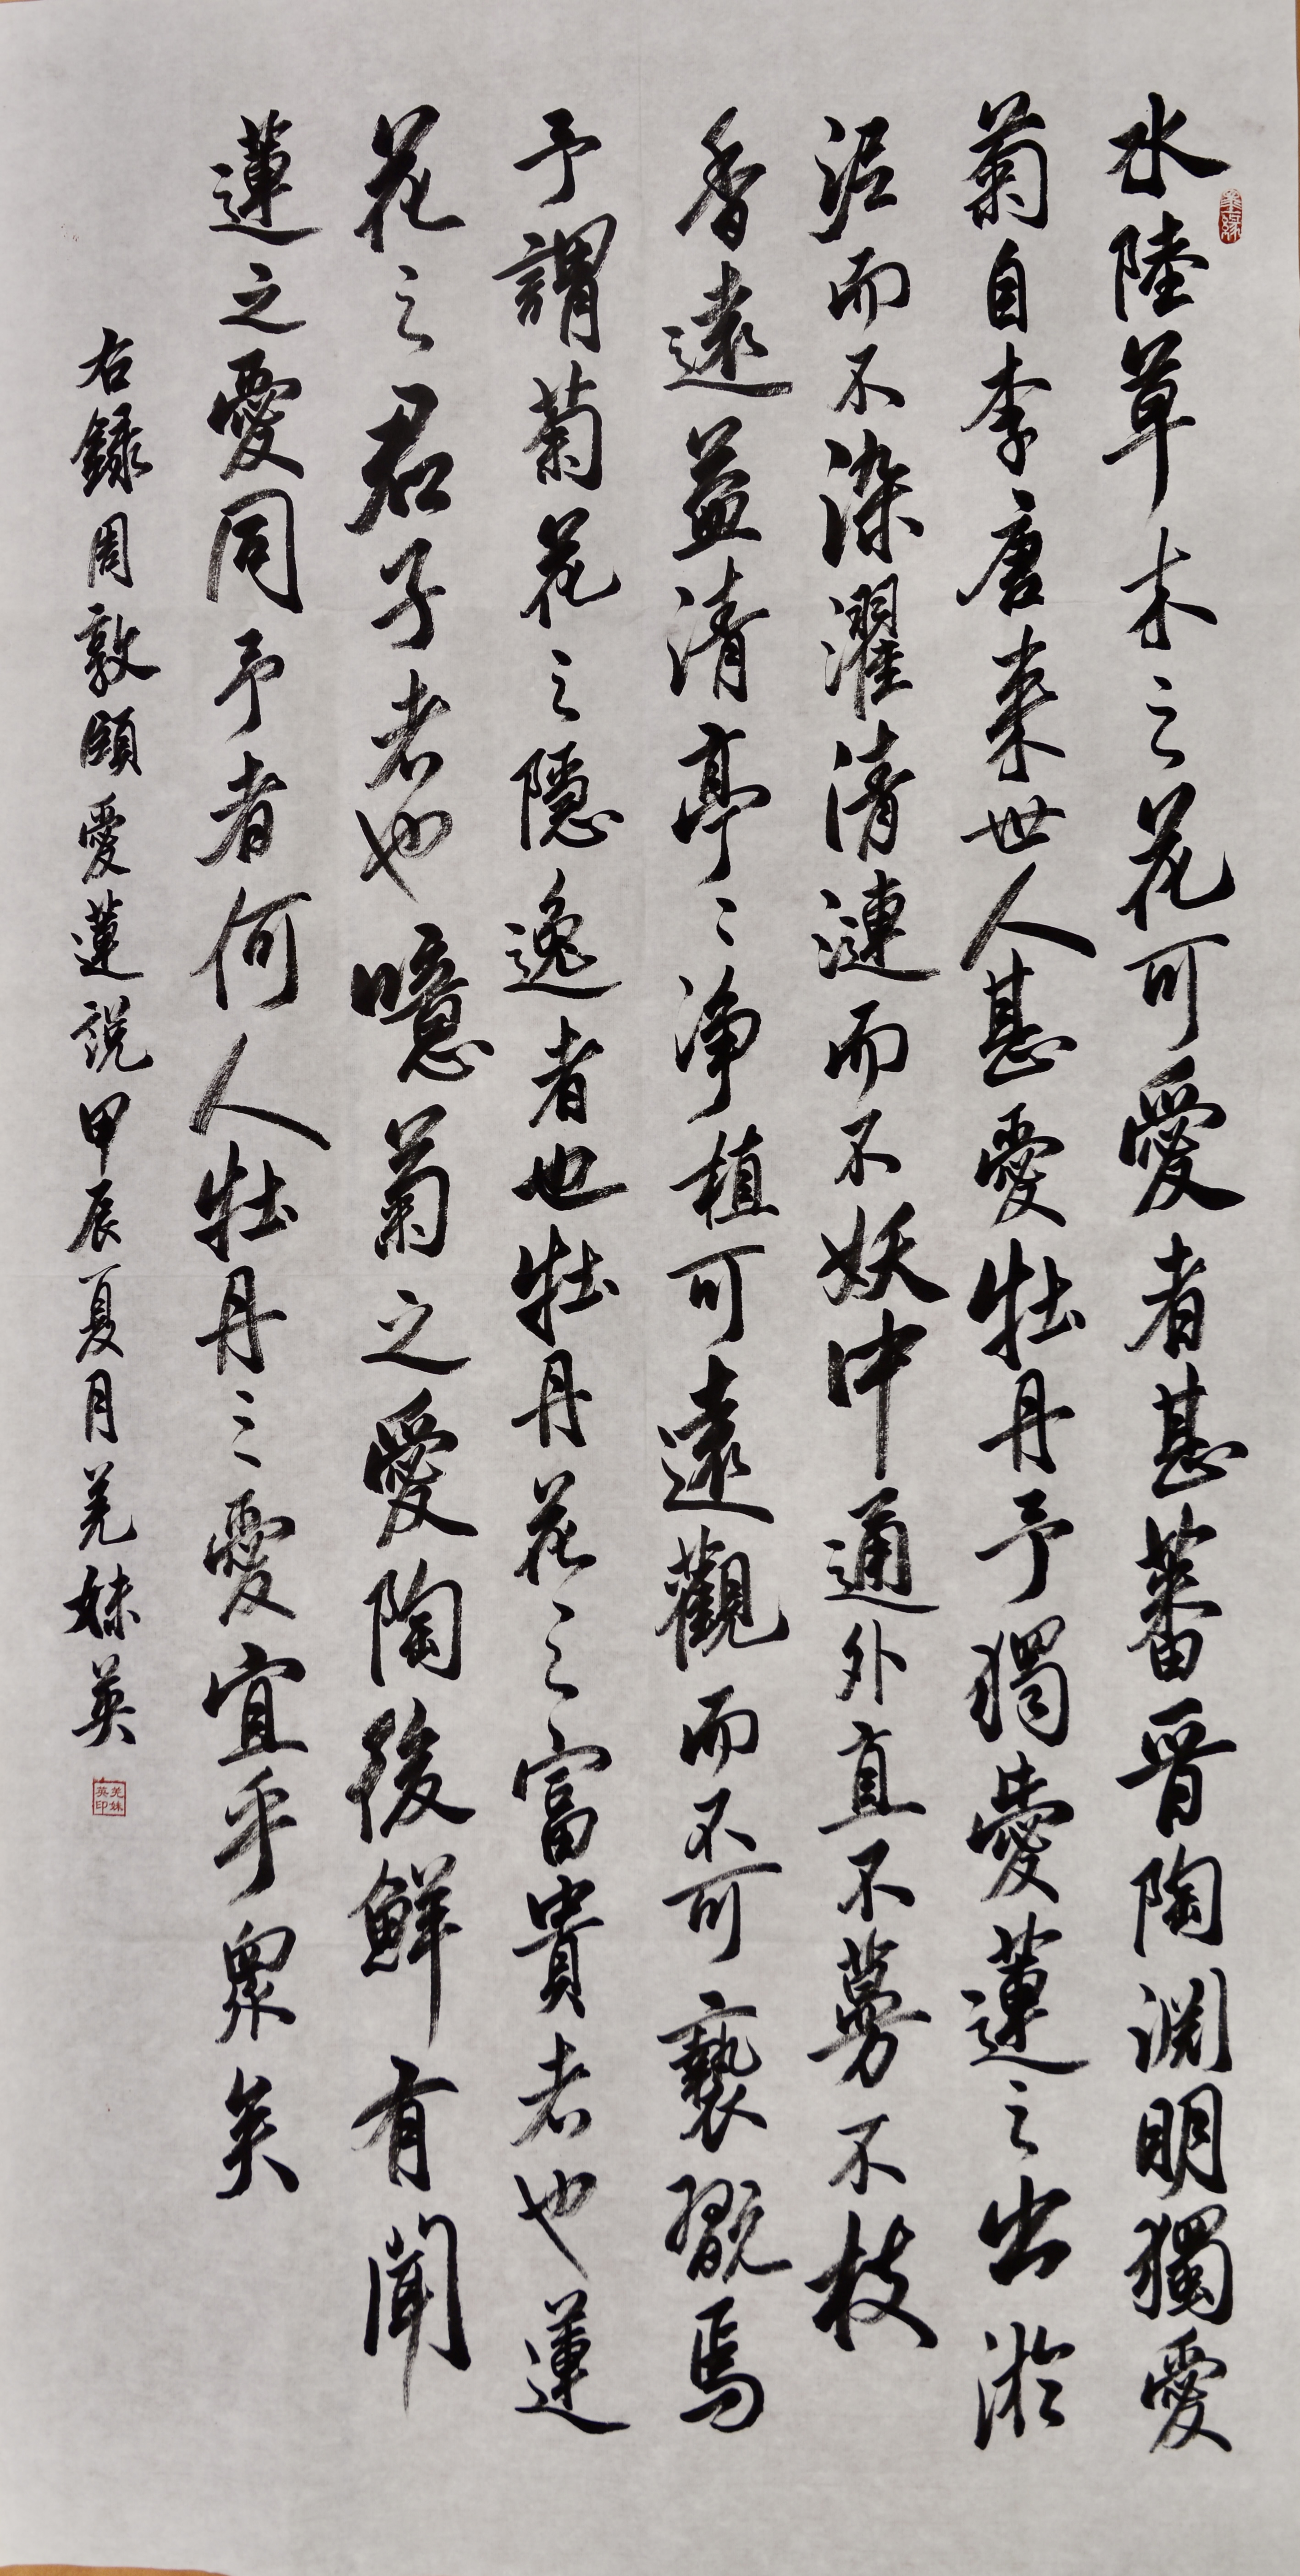 水陸草木之花可愛者甚蕃晉陶渊明獨愛
菊自李唐来世人甚愛牡丹予獨愛蓮之出淤
泥而不染濯清漣而不妖中通外直不蔓不枝
香遠益清亭〻净植可遠觀而不可褻翫焉
予謂菊花之隱逸者也牡丹花之富貴者也蓮
花之君子者也噫菊之愛陶後鮮有聞
蓮之愛同予者何人牡丹之愛宜乎眾矣
右錄周敦頤愛蓮説甲辰夏月羌妹英
羌妹英印